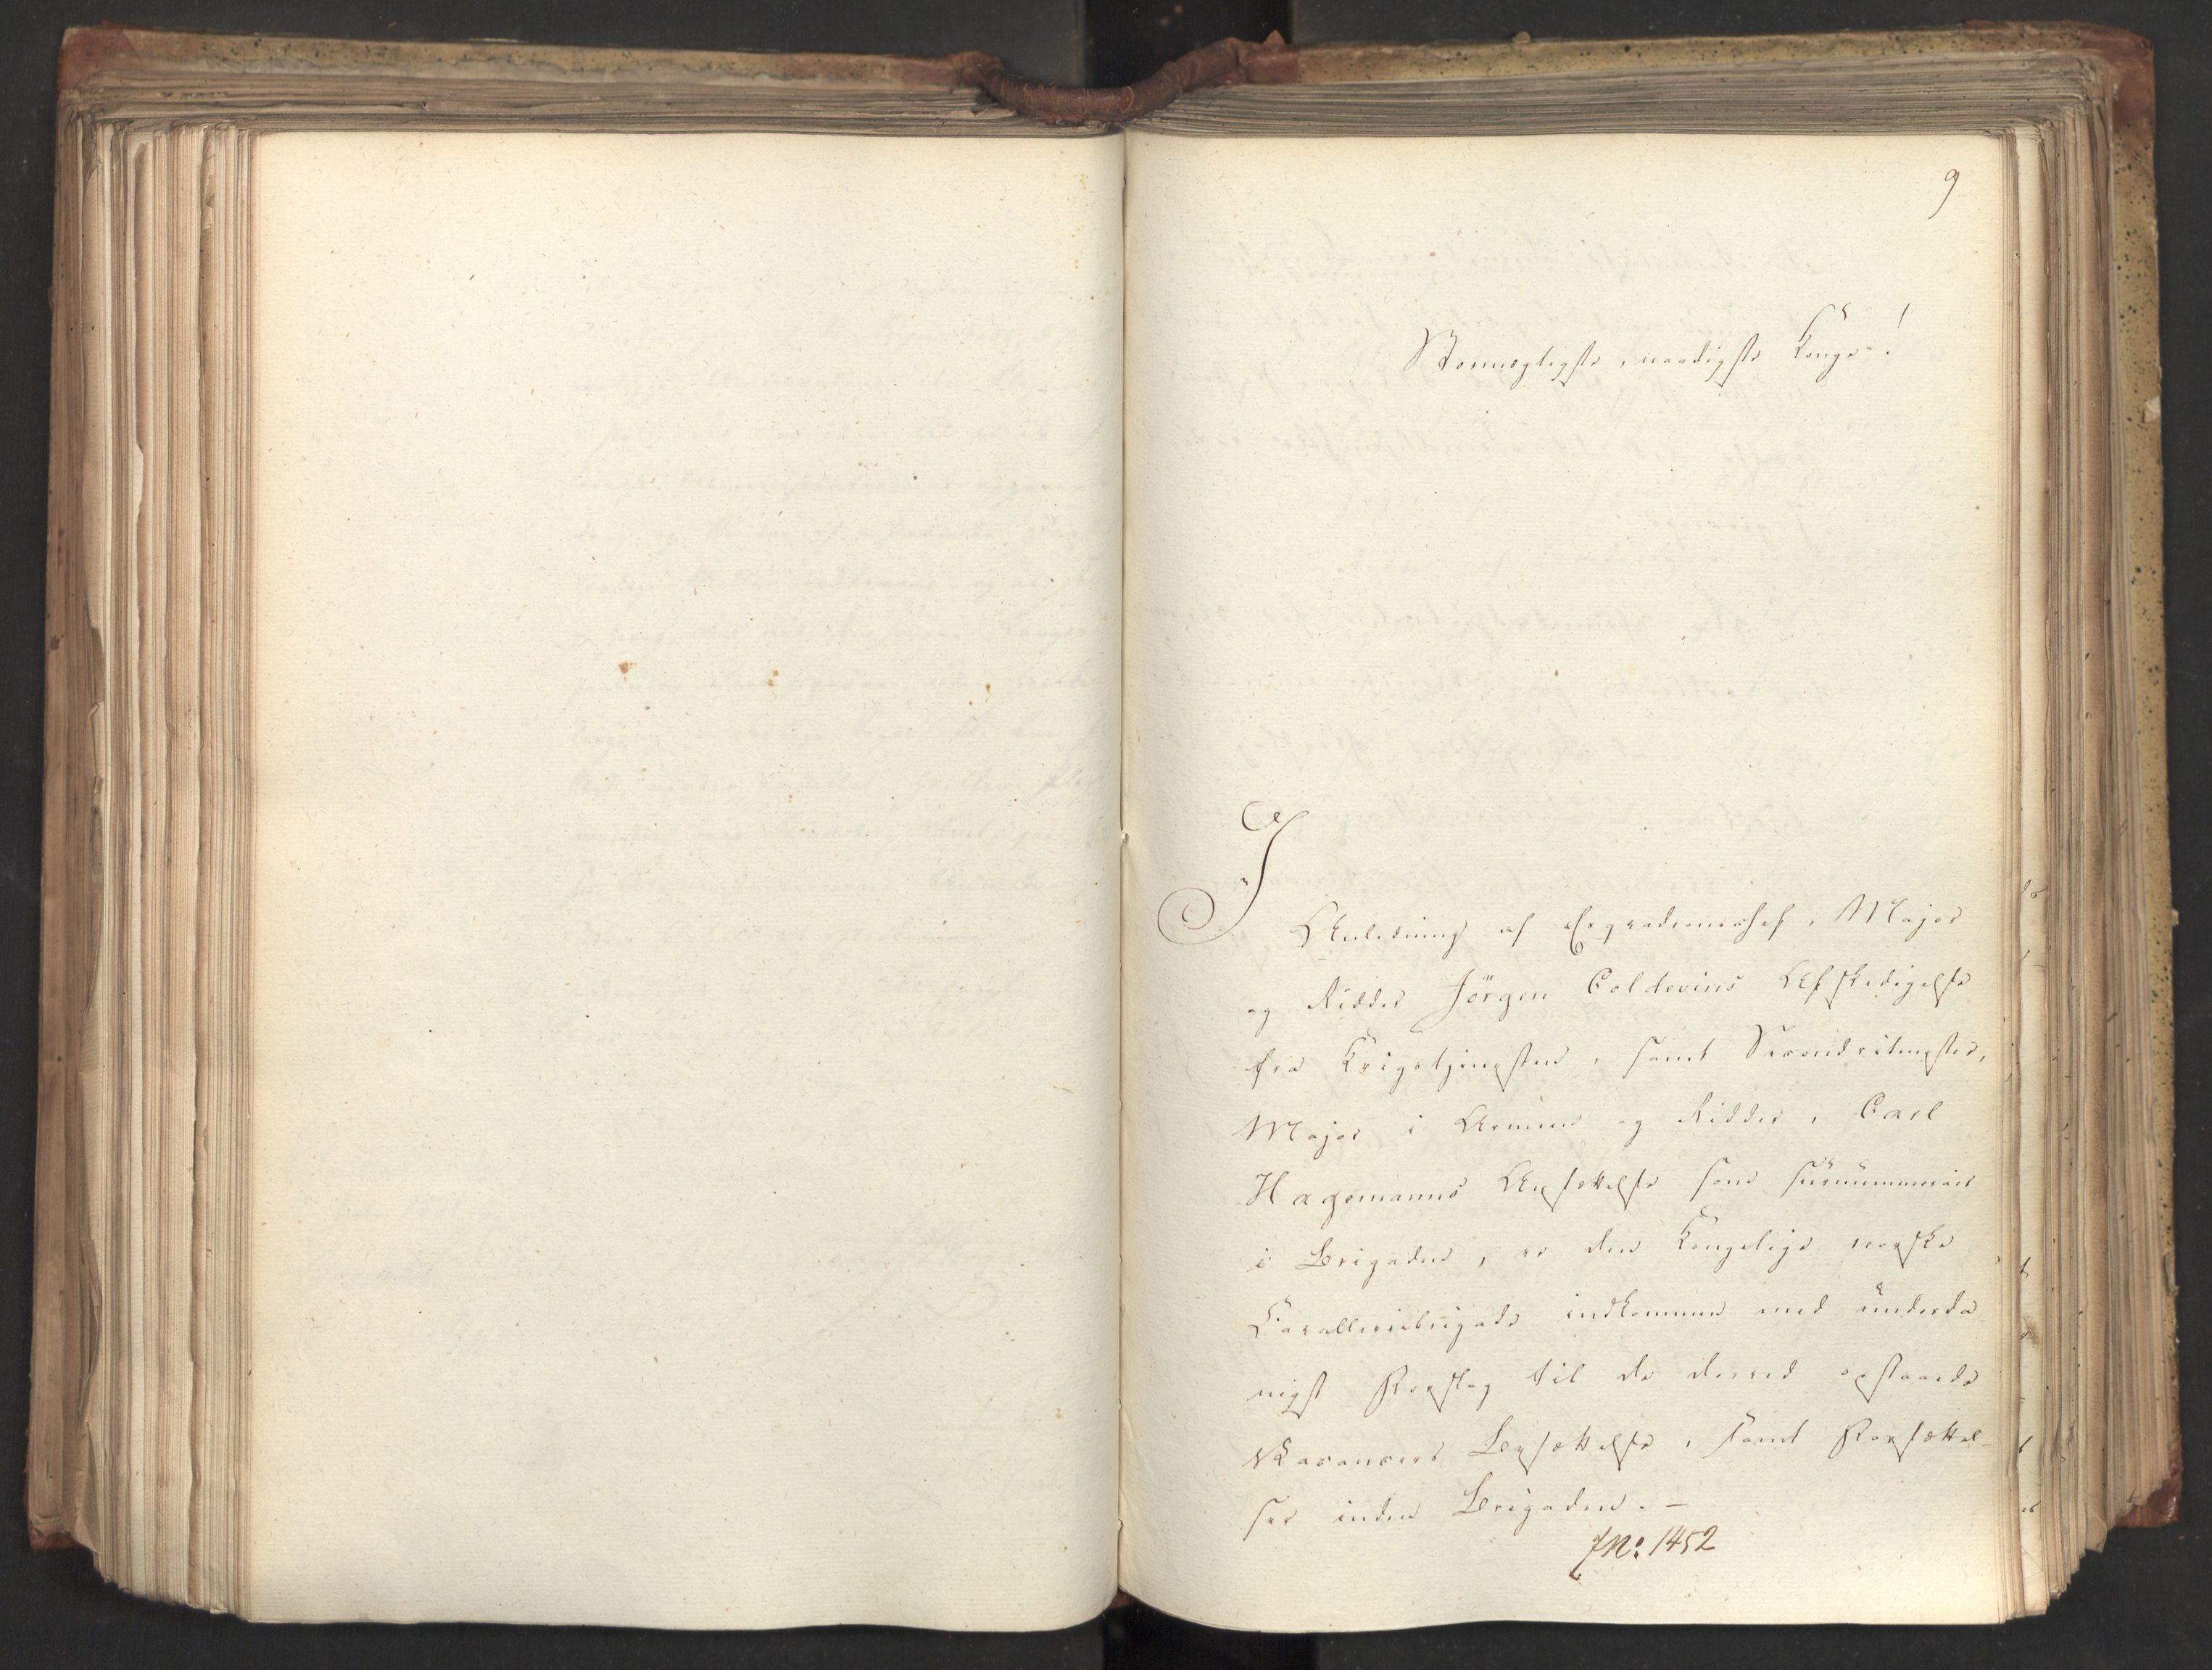 9
Stormægtigste, naadigste Konge!
I
Anledning af Esqvadronschef, Major
og Ridder Jörgen Coldevins Afskedigelse
fra Krigstjenesten, samt Secondritmester,
Major i Armeen og Ridder, Carl
Hagemanns Ansættelse som surnumerair
i Brigaden, er den Kongelige norske
Cavalleriebrigade indkommen med underda
nigst Forslag til de derved opstaaede
Vacancers Besættelse, samt Forsættel-
ser inden Brigaden. -
JN: 1452